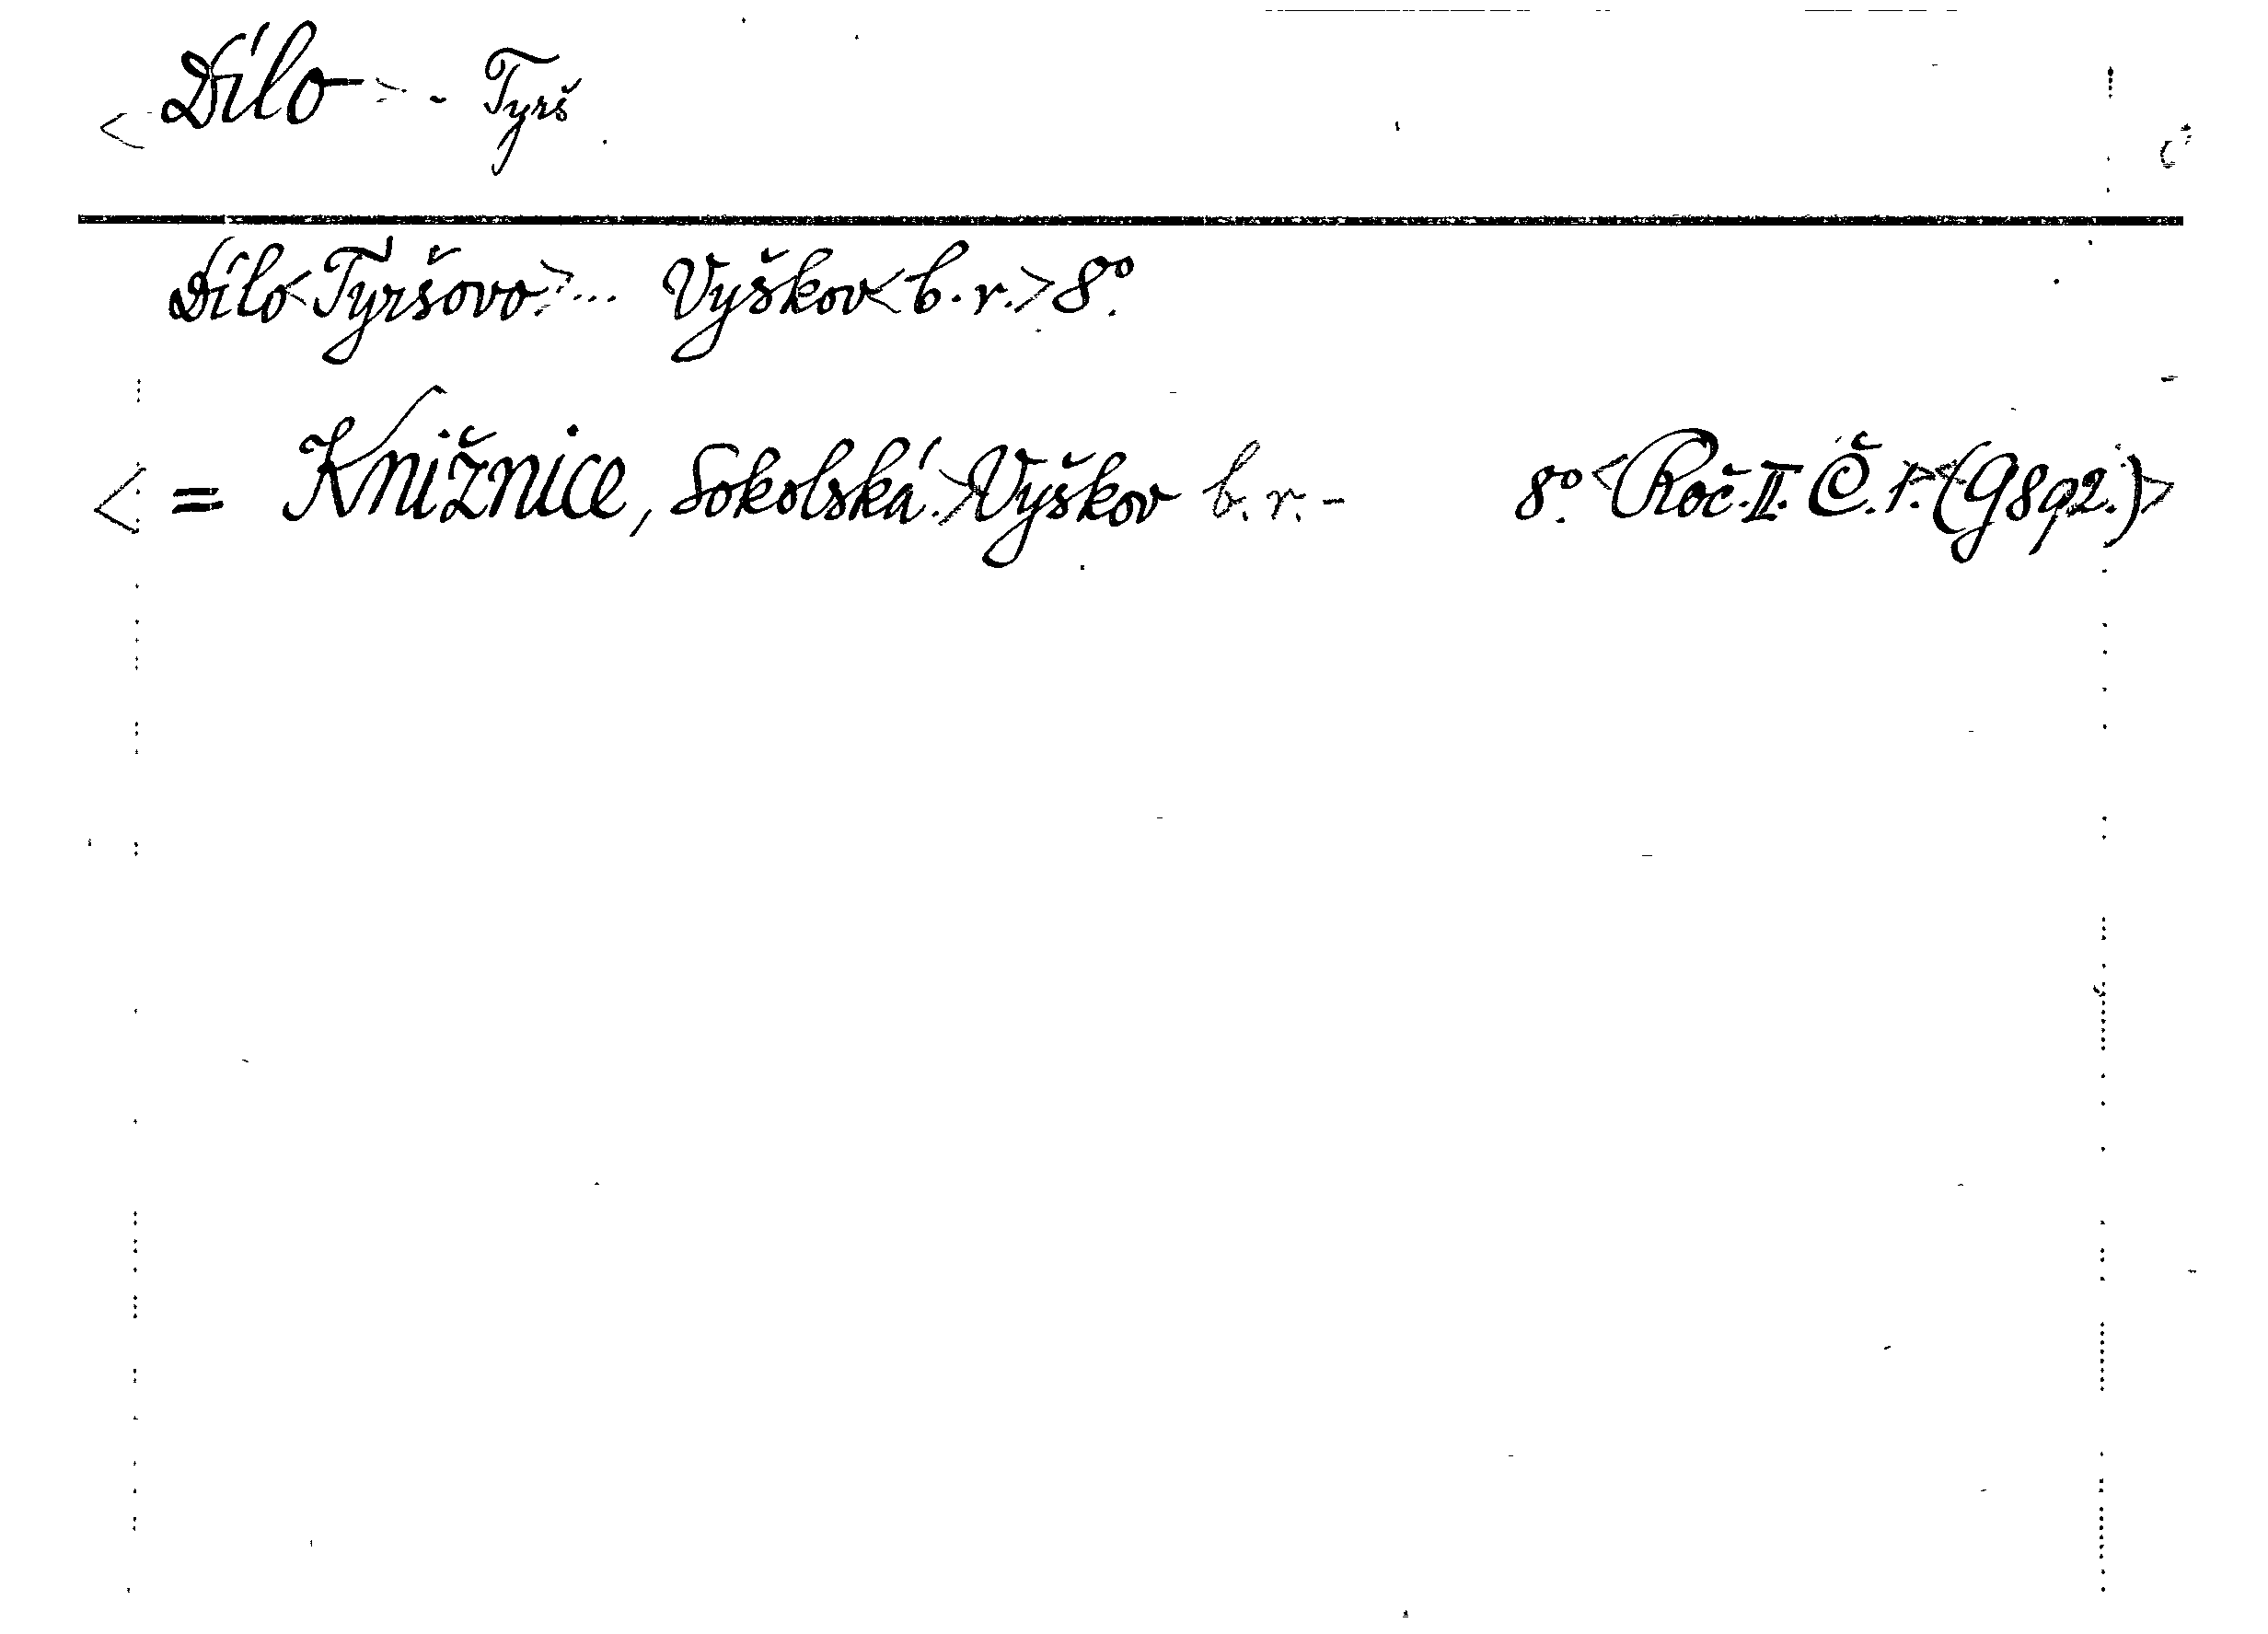 < Dílo > - Tyrš
Dílo < Tyršovo > ... Vyškov < b. r. > 8º.
< = Knižnice, Sokolská. > Vyškov b. r. - 8º. < Roč. II. Č. 1. > < (G892.) >